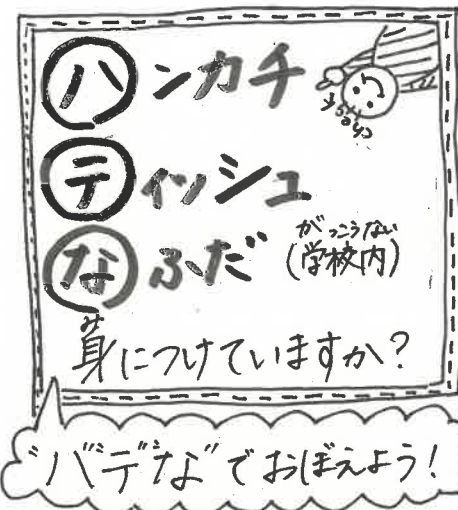 ハンカチ
ティッシュ
なふだ (学校内)
がっこうない
身につけていますか?
み
"ハ"テ"な"でおぼえよう!